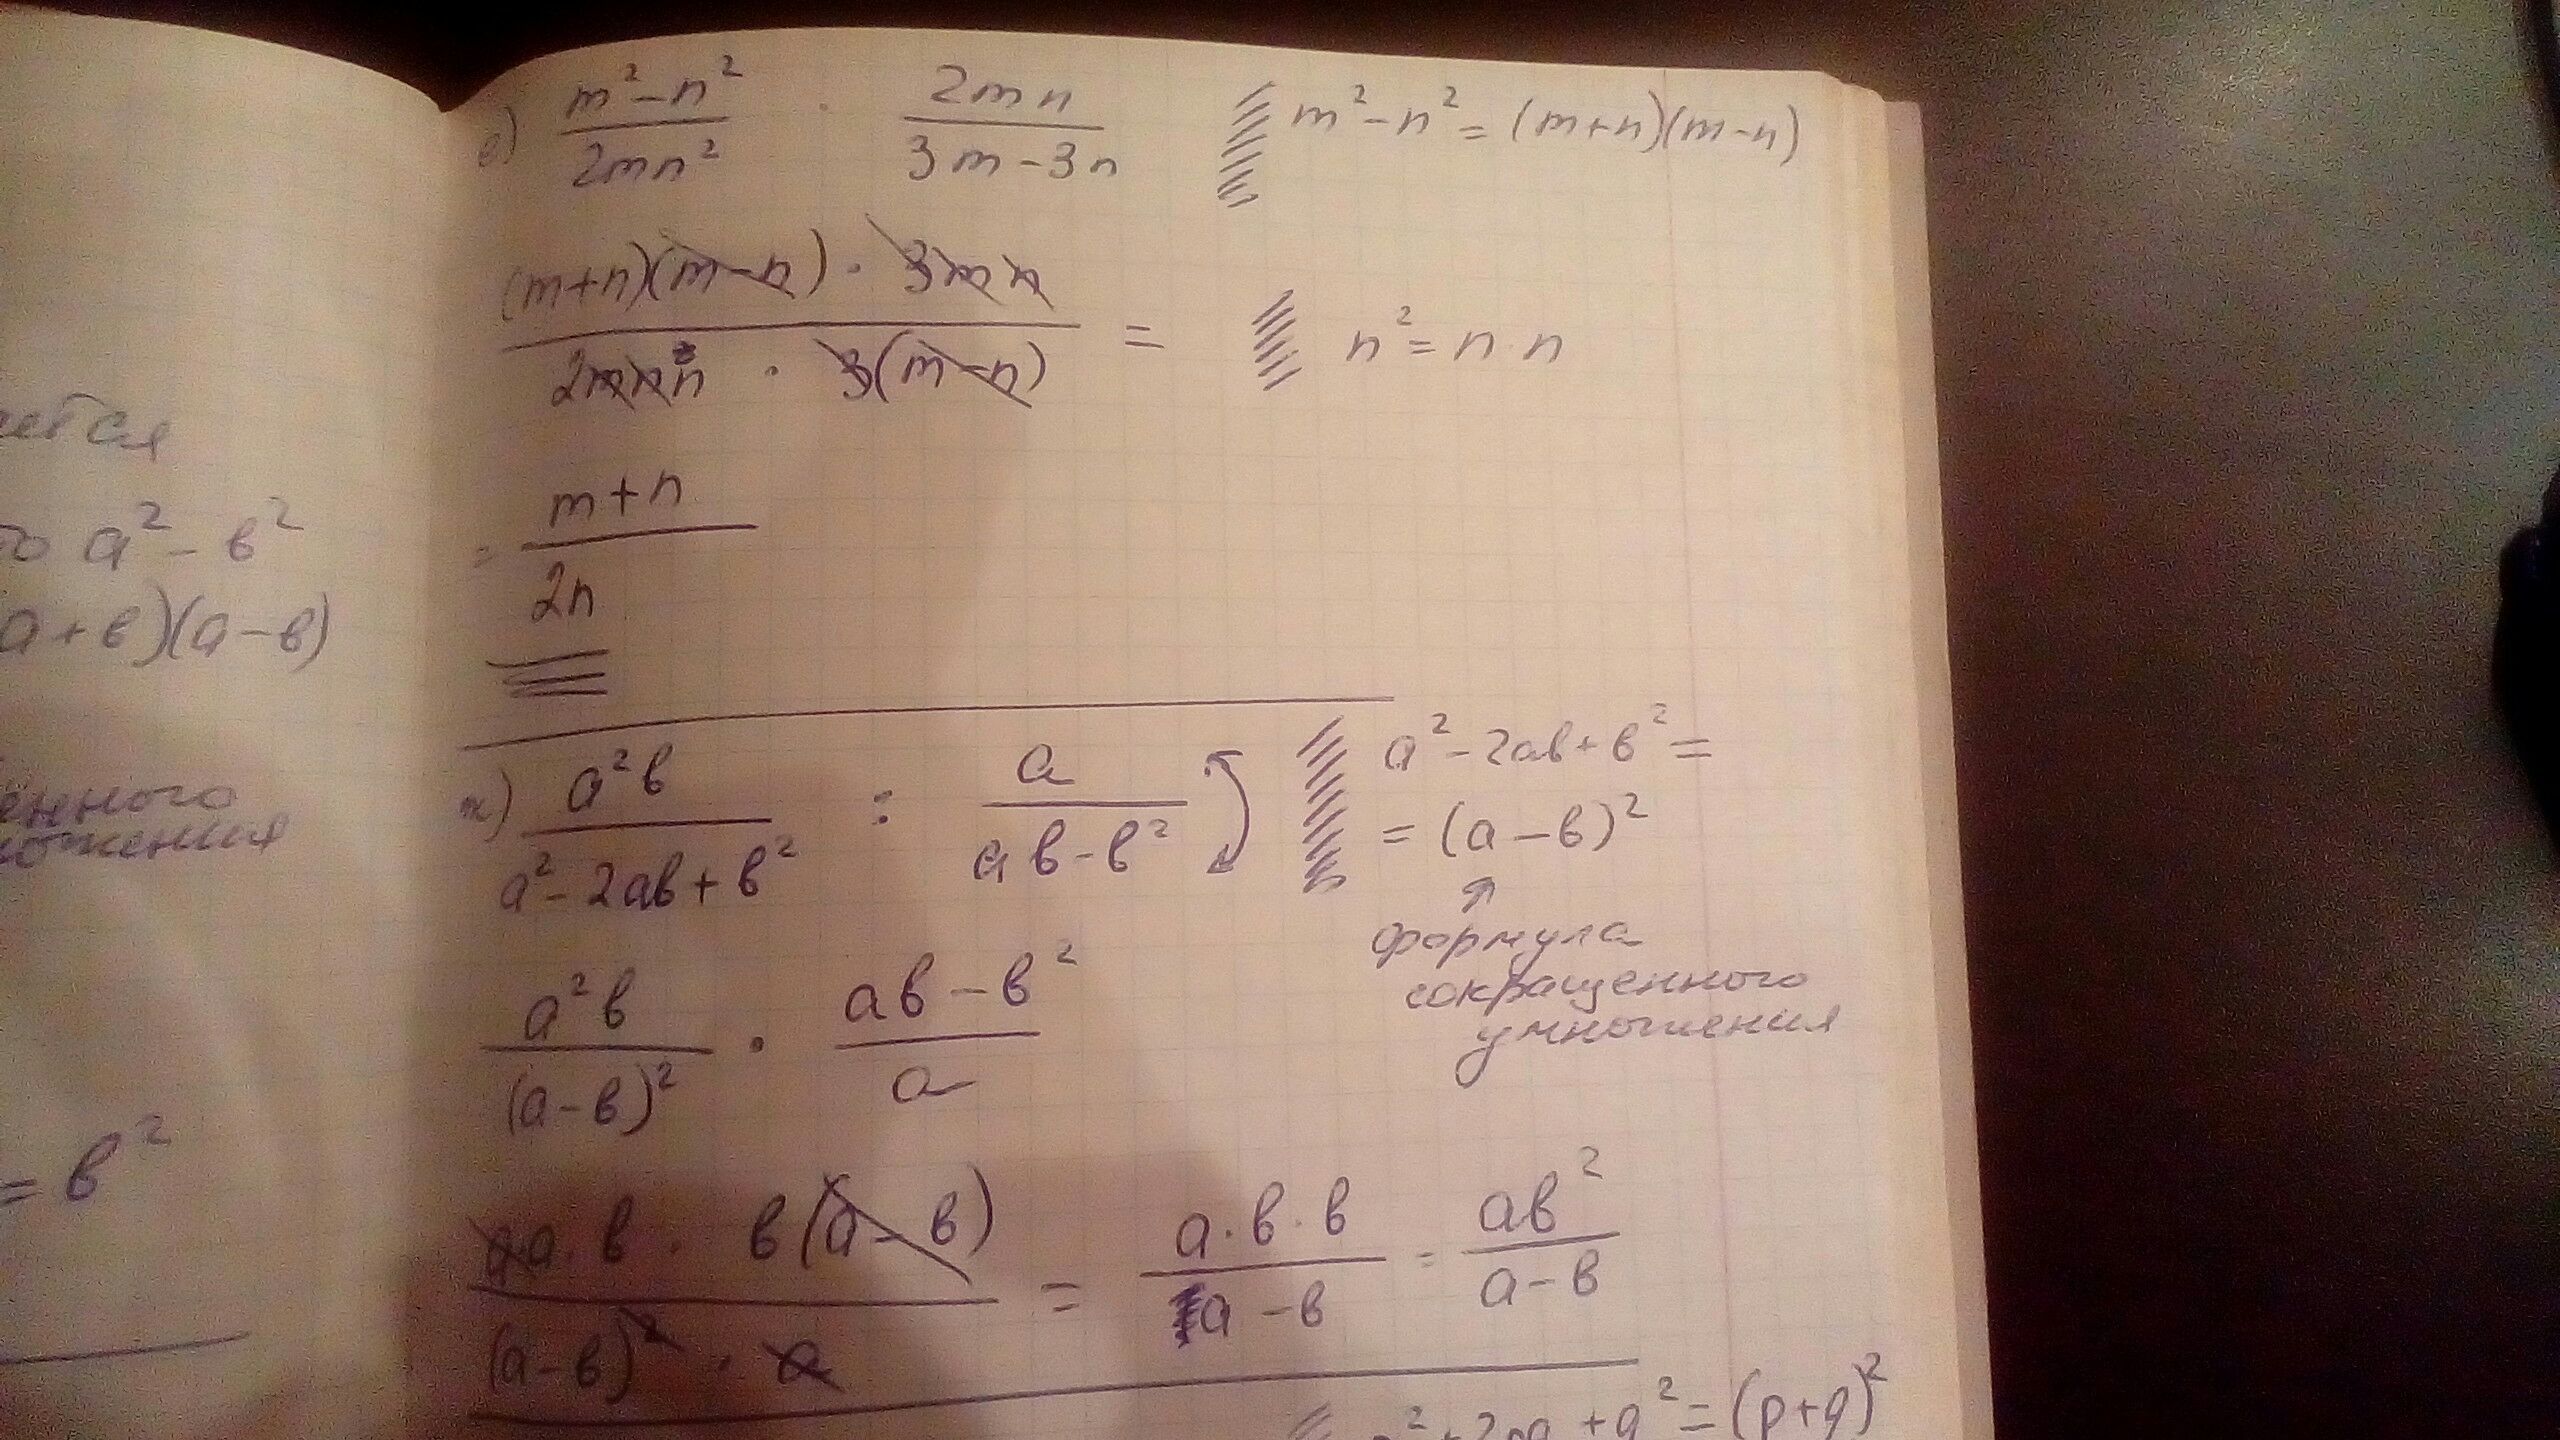 ается
то a² - в²
(a+в)(a-в)
енного
ножения
= в²
е) (m²-n²)/(2mn²) · (2mn)/(3m-3n)
m²-n² = (m+n)(m-n)
((m+n)(m-n) · 3mn)/(2mnn · 3(m-n)) =
n² = n·n
= (m+n)/(2n)
ж) (a²в)/(a²-2aв+в²) : a/(aв-в²)
a²-2aв+в² =
= (a-в)²
формула
сокращенного
умножения
(a²в)/((a-в)²) · (aв-в²)/a
(aa·в · в(a-в))/((a-в)² · a) = (a·в·в)/(a-в) = (aв²)/(a-в)
+q² = (p+q)²